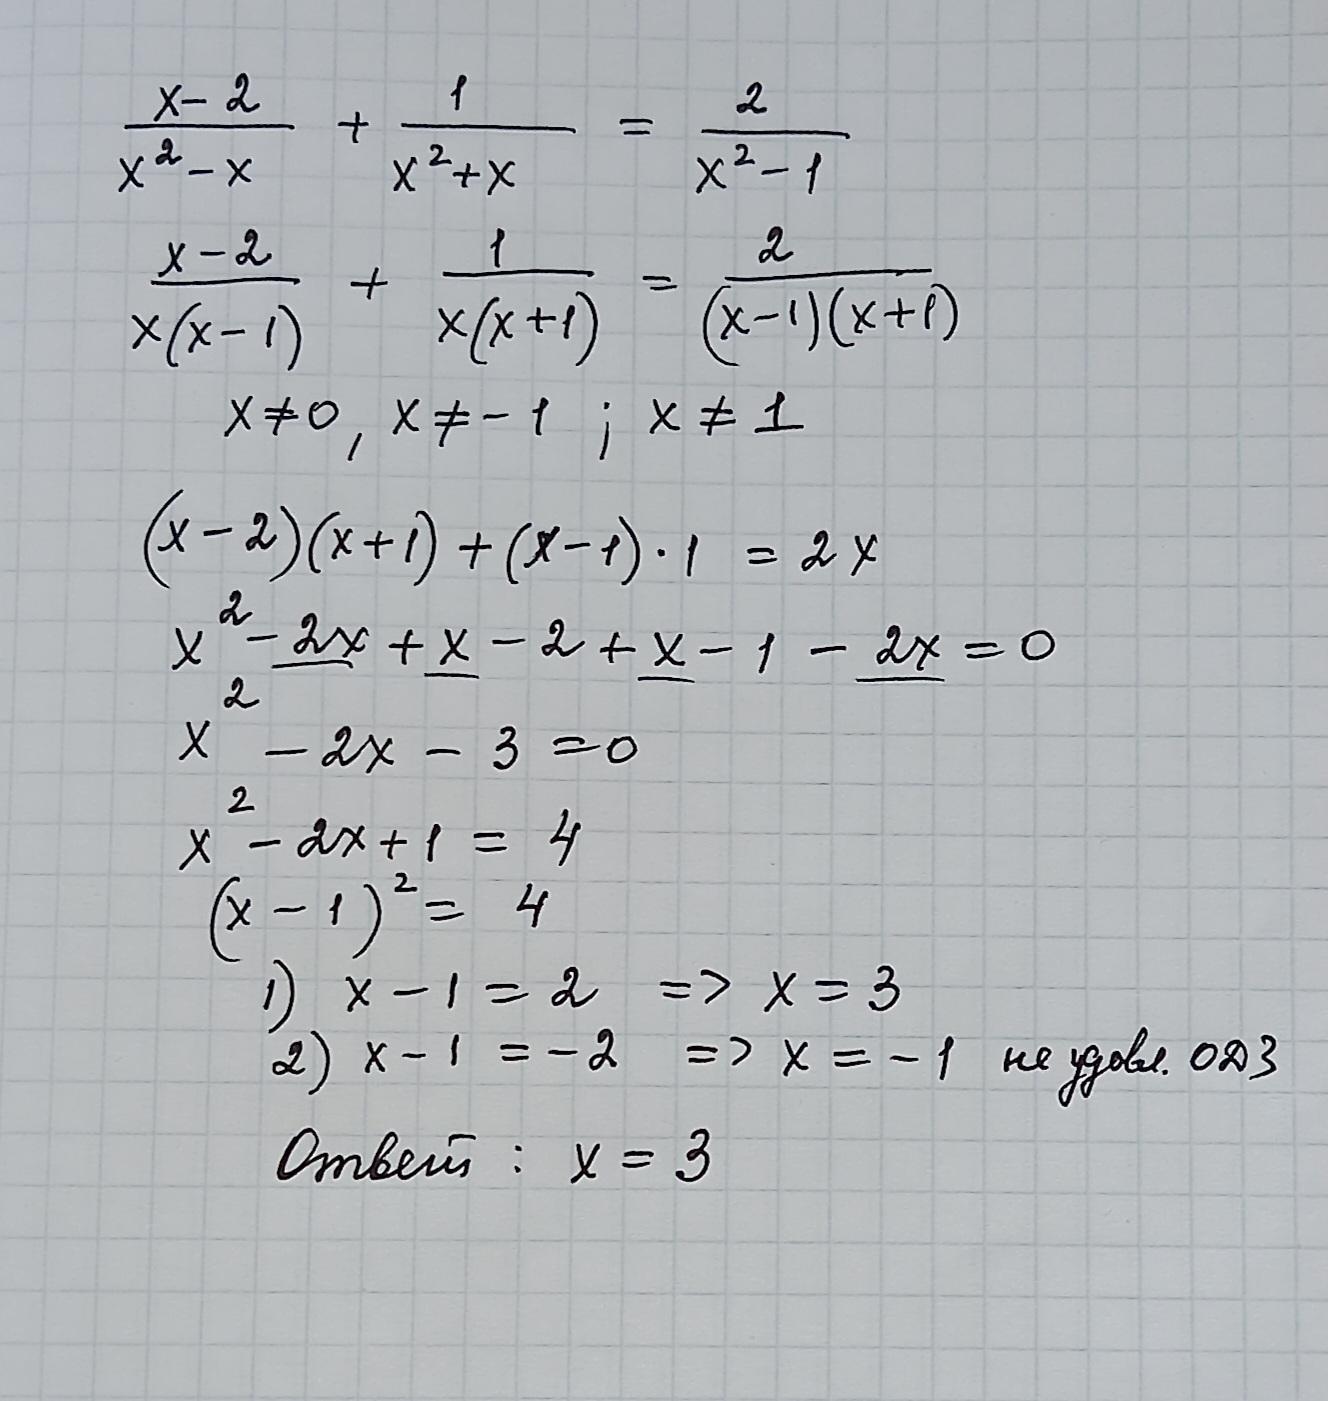 (x-2)/(x²-x) + 1/(x²+x) = 2/(x²-1)
(x-2)/(x(x-1)) + 1/(x(x+1)) = 2/((x-1)(x+1))
x≠0, x≠-1 ; x≠1
(x-2)(x+1)+(x-1)·1 = 2x
x²-2x+x-2+x-1-2x=0
x²-2x-3=0
x²-2x+1=4
(x-1)²=4
1) x-1=2 => x=3
2) x-1=-2 => x=-1 не удовл. ОДЗ
Ответ: x=3